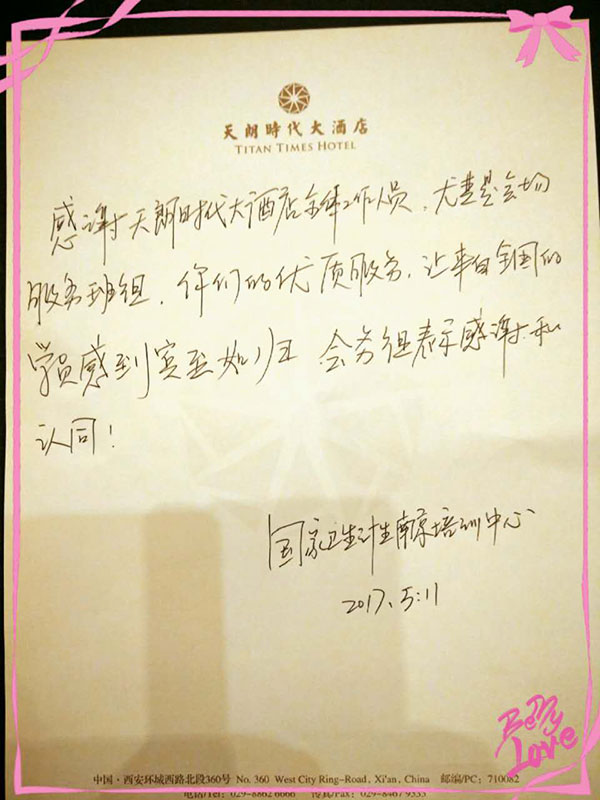 天朗時代大酒店
TITAN TIMES HOTEL
感谢天朗时代大酒店全体工作人员，尤其是会场
服务班组，你们的优质服务，让来自全国的
学员感到宾至如归 会务组表示感谢和
认同！
国家卫生计生南京培训中心
2017.5.11
Betty
Love
中国·西安环城西路北段360号 No. 360 West City Ring-Road, Xi'an, China 邮编/PC: 710082
电话/Tel: 029-8862 6666 传真/Fax: 029-8467 9333